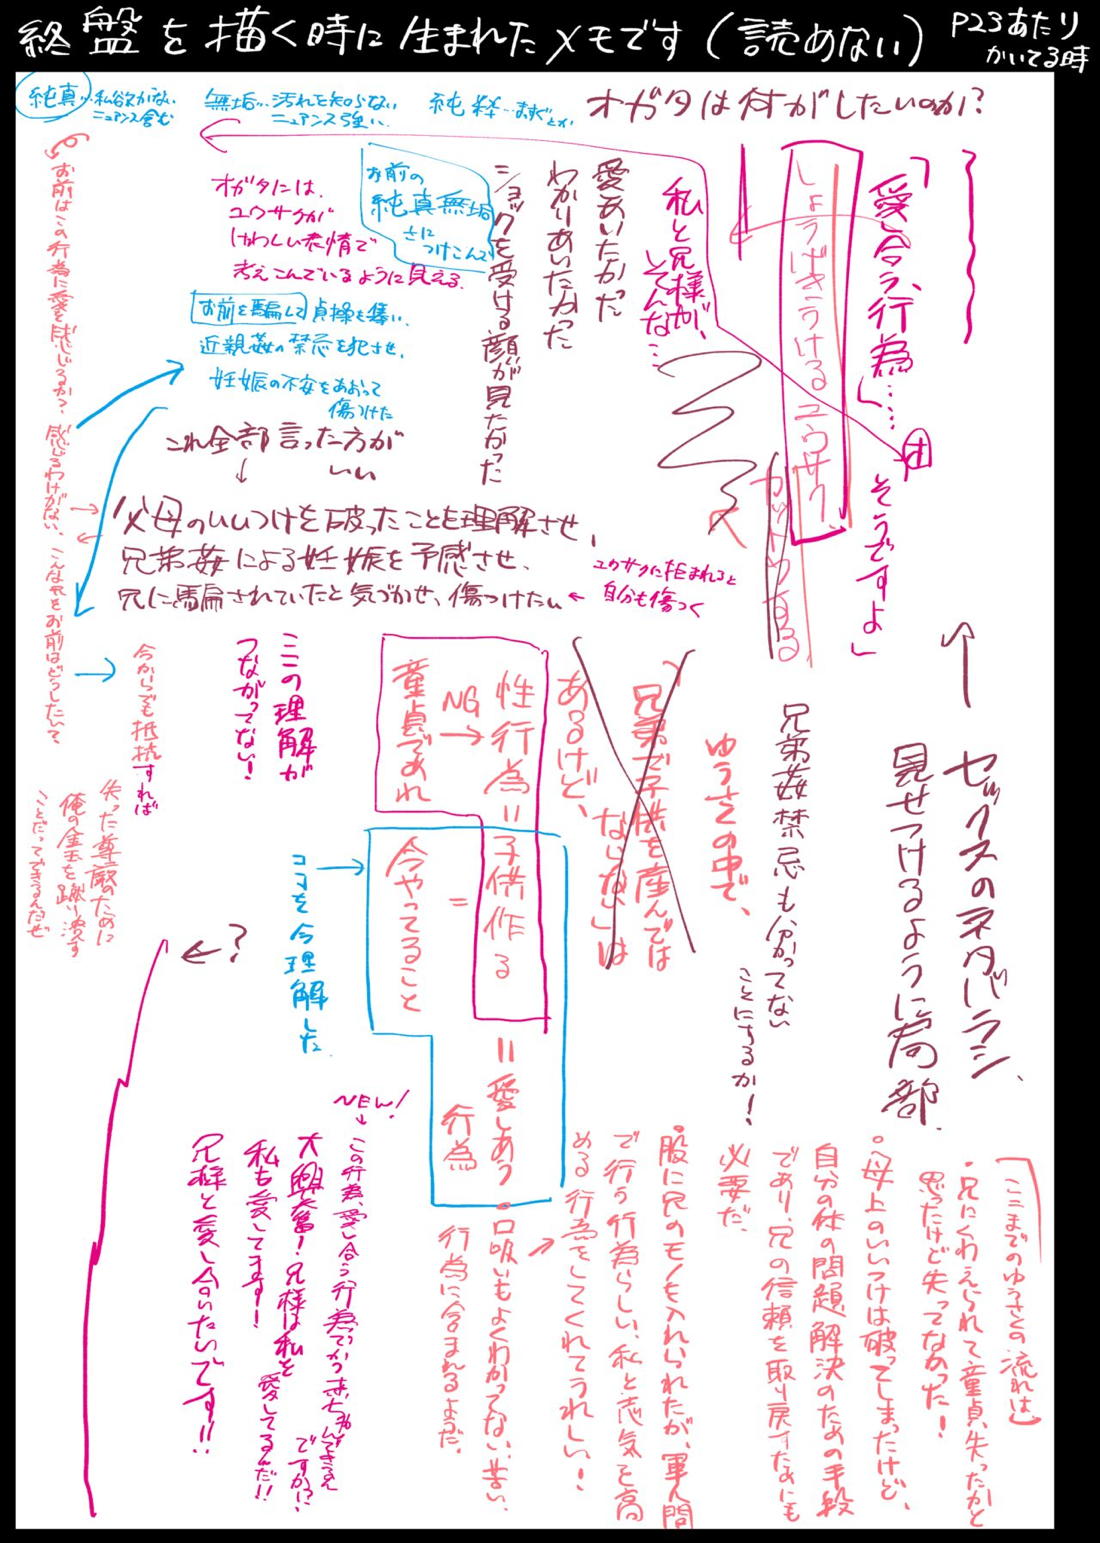 終盤を描く時に生まれたメモです(読めない)
P23あたり
かいてる時
純真…私欲がない
ニュアンス含む
無垢…汚れを知らない
ニュアンス強い
純粋…まっすぐとか
オガタは何がしたいのか?
「愛し合う、行為……
そうですよ」
しょうげきうけるユウサク
カットわりする
私と兄様が、
そんな…
愛しあいたかった
わかりあいたかった
ショックを受ける顔が見たかった
お前の
純真無垢
さに
つけこんで
オガタには、
ユウサクが
けわしい表情で
考えこんでいるように見える
お前を騙して貞操を奪い、
近親姦の禁忌を犯させ、
妊娠の不安をあおって
傷つけた
これ全部言った方が
いい
父母のいいつけを破ったことを理解させ、
兄弟姦による妊娠を予感させ、
兄に騙されていたと気づかせ、傷つけたい
ユウサクに拒まれると
自分も傷つく
お前はこの行為に愛を感じるか?感じるわけがない、こんな兄をお前はどうしたいて
今からでも抵抗すれば
失った尊厳のために
俺の金玉を蹴り潰す
ことだってできるんだぜ
セックスのネタバラシ、
見せつけるように局部
兄弟姦禁忌も分かってない
ことにするか!
ゆうさの中で、
「兄弟で子供を産んでは
ならない」は
あるけど、
性行為=子供作る
=愛しあう
行為
NG
童貞であれ
今やってること
=
ここの理解が
つながってない!
ココを今理解した
?
NEW!
この行為、愛し合う行為でかつ赤ちゃんできるん
ですか!?
大興奮!兄様は私を
愛してるんだ!!
私も愛してます!
兄様と愛し合いたいです!!
「ここまでのゆうさくの流れは」
・兄にくわえられて童貞失ったかと
思ったけど失ってなかった!
・母上のいいつけは破ってしまったけど、
自分の体の問題解決のための手段
であり、兄の信頼を取り戻すためにも
必要だ。
・股に兄のモノを入れられたが、軍人間
で行う行為らしい、私と志気を高
める行為をしてくれてうれしい!
・口吸いもよくわかってない、苦い、
行為に含まれるようだ。